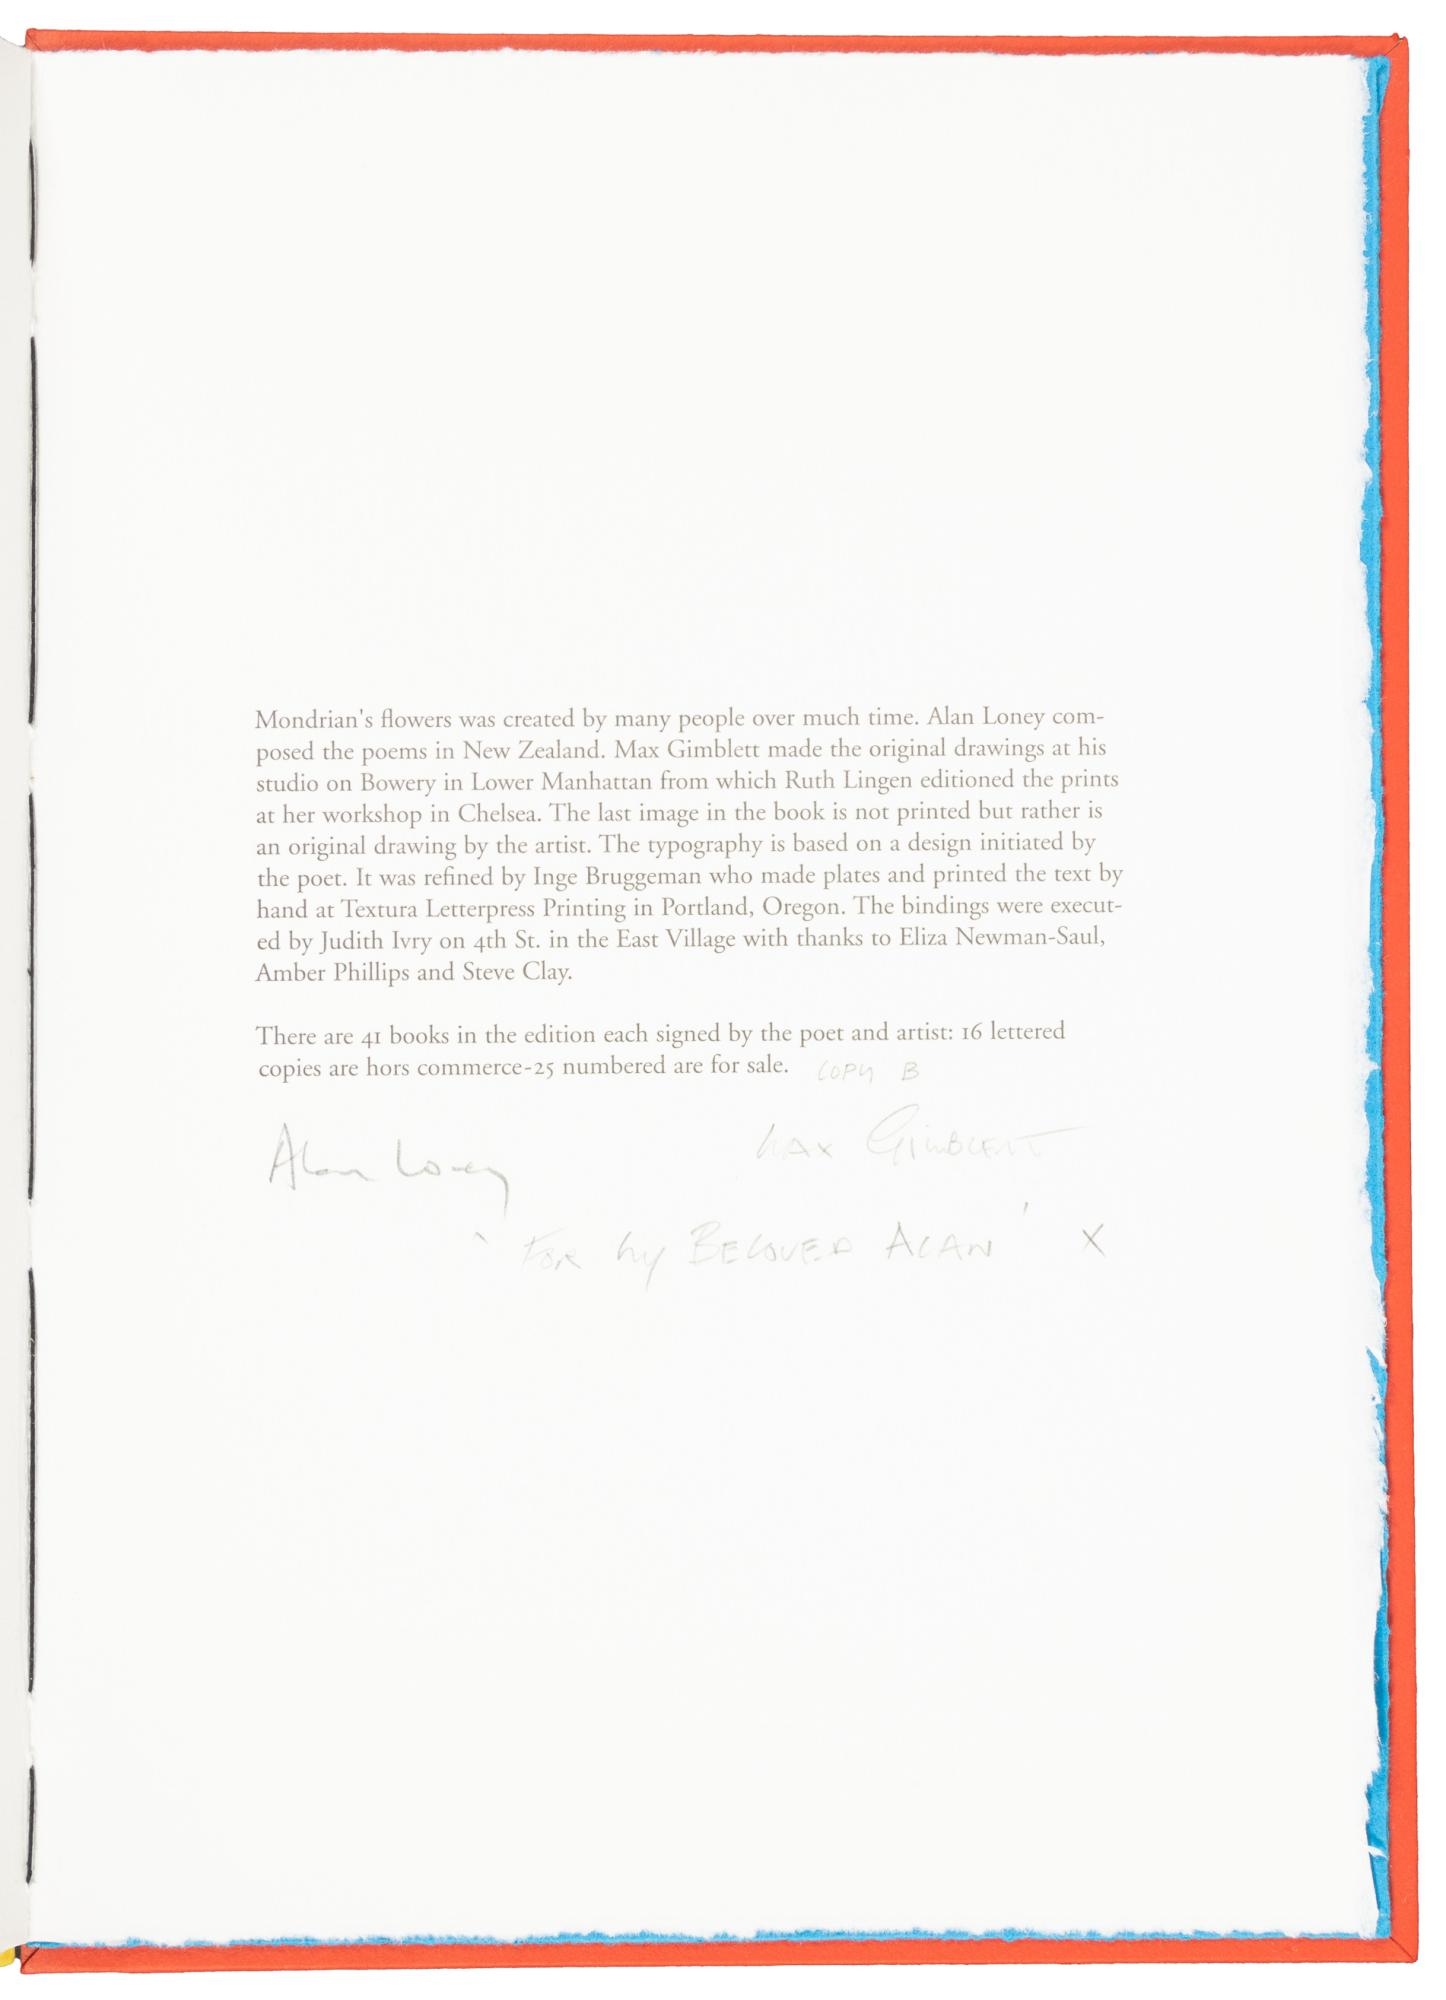 Mondrian's flowers was created by many people over much time. Alan Loney com-
posed the poems in New Zealand. Max Gimblett made the original drawings at his
studio on Bowery in Lower Manhattan from which Ruth Lingen editioned the prints
at her workshop in Chelsea. The last image in the book is not printed but rather is
an original drawing by the artist. The typography is based on a design initiated by
the poet. It was refined by Inge Bruggeman who made plates and printed the text by
hand at Textura Letterpress Printing in Portland, Oregon. The bindings were execut-
ed by Judith Ivry on 4th St. in the East Village with thanks to Eliza Newman-Saul,
Amber Phillips and Steve Clay.

There are 41 books in the edition each signed by the poet and artist: 16 lettered
copies are hors commerce-25 numbered are for sale. COPY B
Alan Loney MAX GIMBLETT
' FOR My BELOVED ALAN ' X